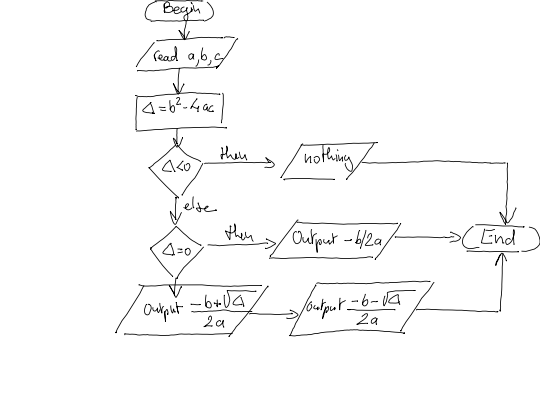 Begin
read a,b,c
Δ=b²-4ac
Δ<0
then
nothing
else
Δ=0
then
Output -b/2a
End
Output -b+√Δ
2a
output -b-√Δ
2a